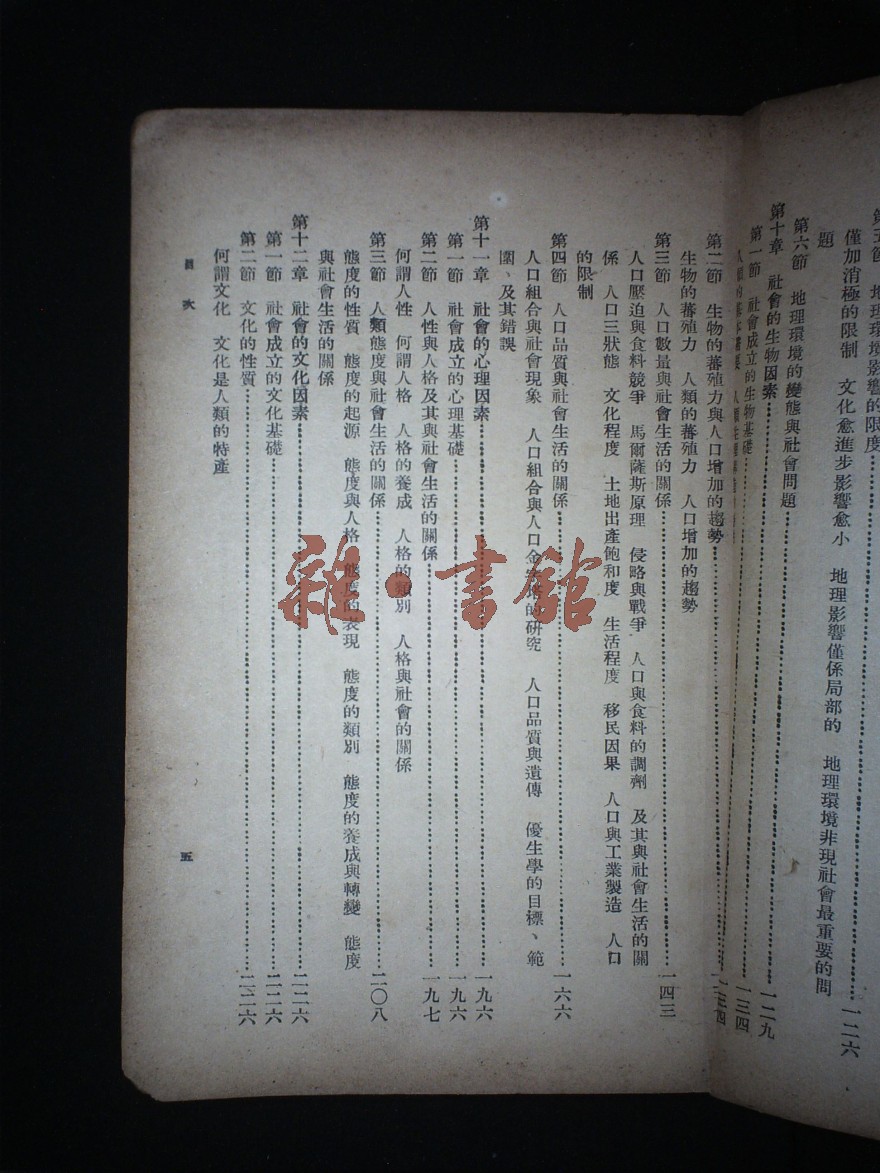 第五節 地理環境影響的限度……一二六
僅加消極的限制 文化愈進步影響愈小 地理影響僅係局部的 地理環境非現社會最重要的問
題
第六節 地理環境的變態與社會問題……一二九
第十章 社會的生物因素……一三四
第一節 社會成立的生物基礎……
第二節 生物的蕃殖力與人口增加的趨勢……
生物的蕃殖力 人類的蕃殖力 人口增加的趨勢
第三節 人口數量與社會生活的關係……一四三
人口壓迫與食料競爭 馬爾薩斯原理 侵略與戰爭 人口與食料的調劑 及其與社會生活的關
係 人口三狀態 文化程度 土地出產飽和度 生活程度 移民因果 人口與工業製造 人口
的限制
第四節 人口品質與社會生活的關係……一六六
人口組合與社會現象 人口組合與人口金字塔的研究 人口品質與遺傳 優生學的目標、範
圍、及其錯誤
第十一章 社會的心理因素……一九六
第一節 社會成立的心理基礎……一九六
第二節 人性與人格及其與社會生活的關係……一九七
何謂人性 何謂人格 人格的養成 人格的類別 人格與社會的關係
第三節 人類態度與社會生活的關係……二〇八
態度的性質 態度的起源 態度與人格 態度的表現 態度的類別 態度的養成與轉變 態度
與社會生活的關係
第十二章 社會的文化因素……二二六
第一節 社會成立的文化基礎……二二六
第二節 文化的性質……二二六
何謂文化 文化是人類的特產
目次
五
雜·書館